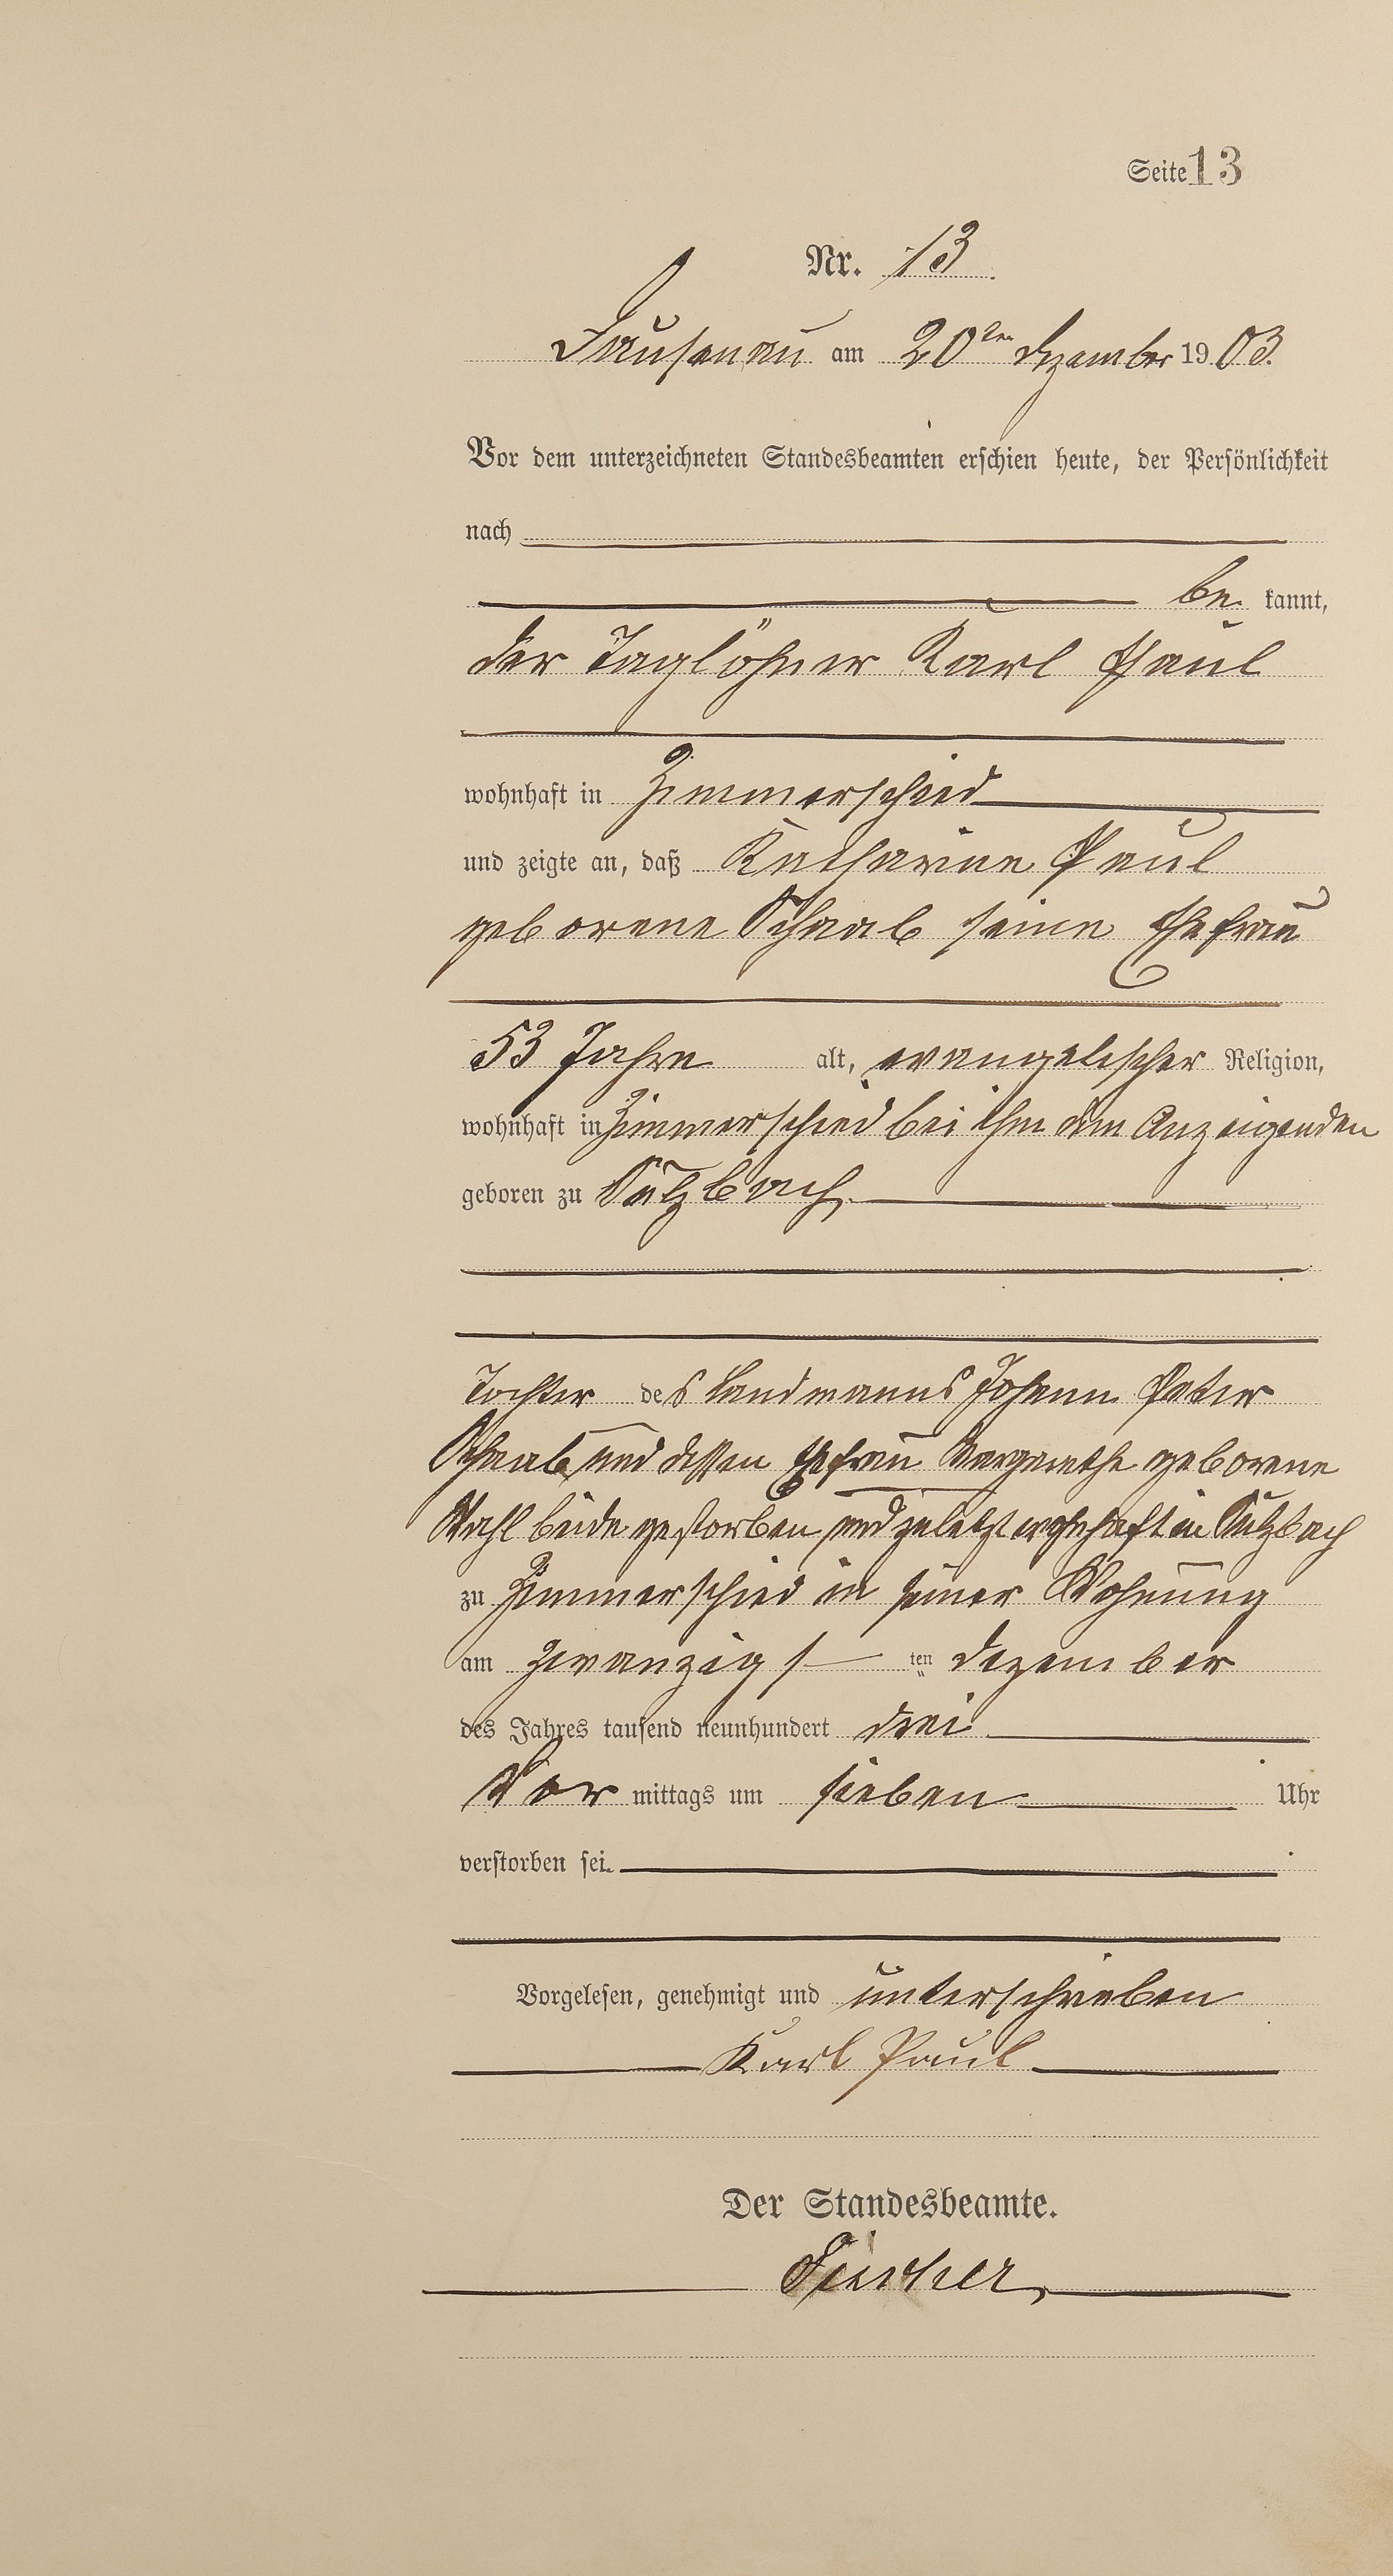 Seite 13
Nr. 13
am 20ten Dezember 1903.
Vor dem unterzeichneten Standesbeamten erschien heute, der Persönlichkeit
nach
be kannt,
der Taglöhner Karl Paul
wohnhaft in Zimmerschied
und zeigte an, daß Katharine Paul
geborene Schaab seine Ehefrau
53 Jahre alt, evangelischer Religion,
wohnhaft in Zimmerschied bei ihm dem Anzeigenden
geboren zu Sulzbach
Tochter des Landmanns Johann Peter
Schaab und dessen Ehefrau Margarethe geborene
beide gestorben und zuletzt wohnhaft in Sulzbach
zu Zimmerschied in seiner Wohnung
am zwanzigsten Dezember
des Jahres tausend neunhundert drei
Vor mittags um sieben Uhr
verstorben sei.
Vorgelesen, genehmigt und unterschrieben
Karl Paul
Der Standesbeamte.